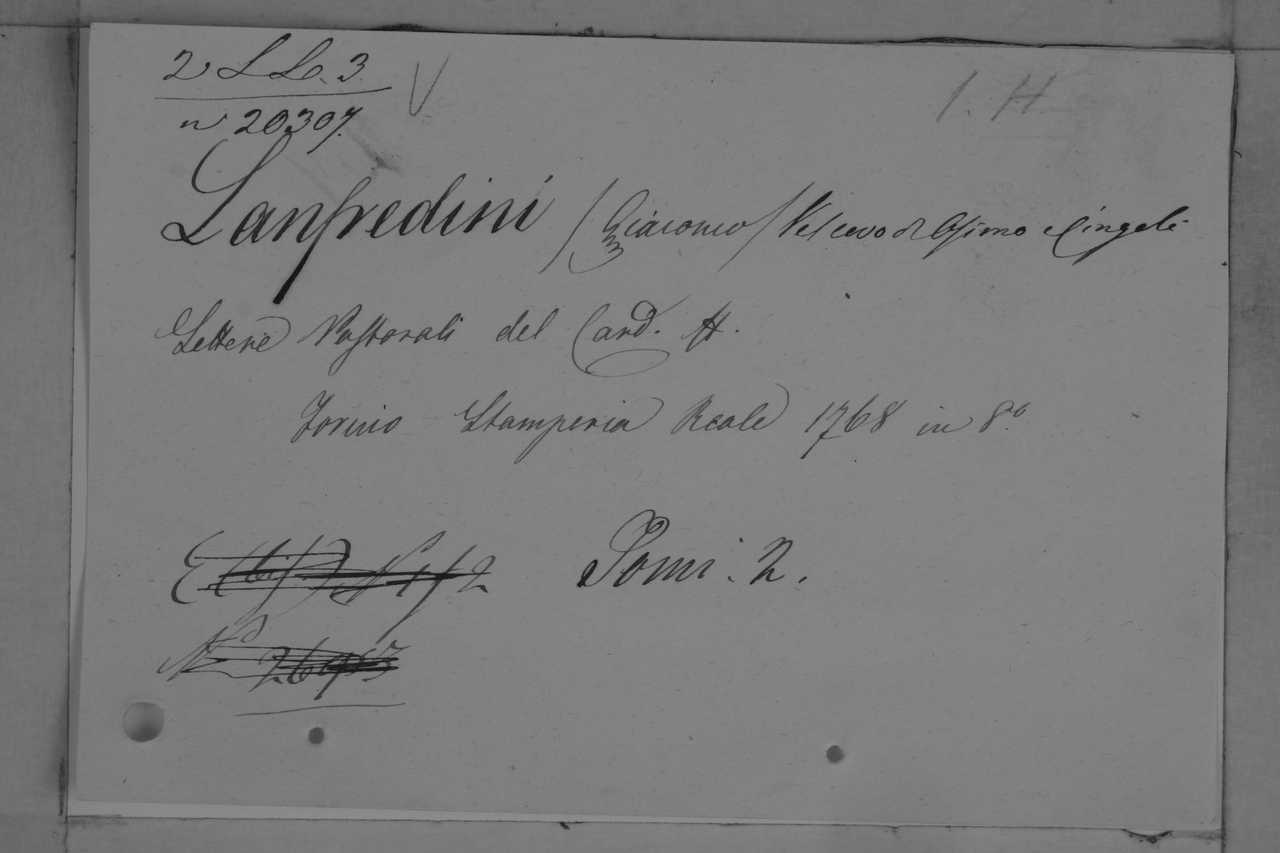 2 LL. 3
n 20307.
1. H
Lanfredini /Giacomo/ Vescovo d Osimo e Cingoli
Lettere Pastorali del Card. H.
Torino Stamperia Reale 1768 in 8.º
Tomi. 2.
Nº 2693